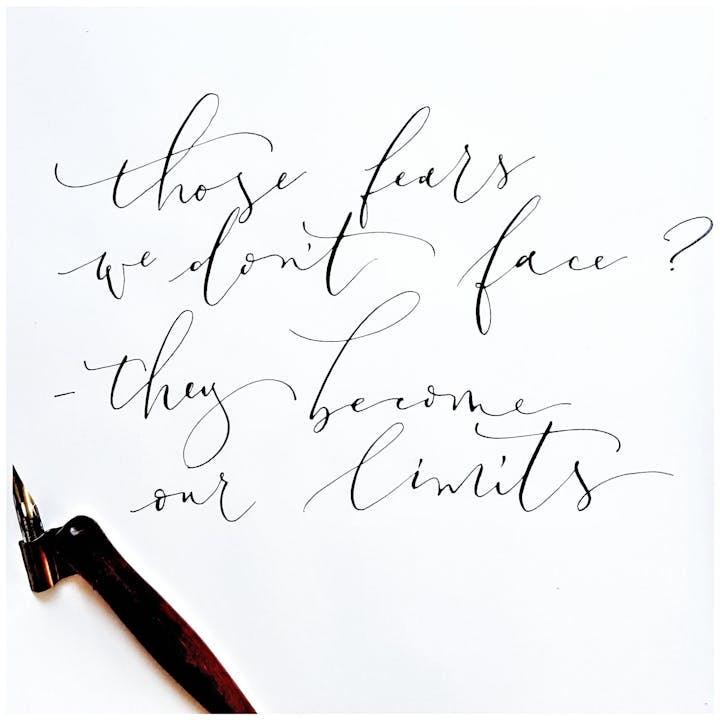 those fears
we don't face ?
- they become
our limits